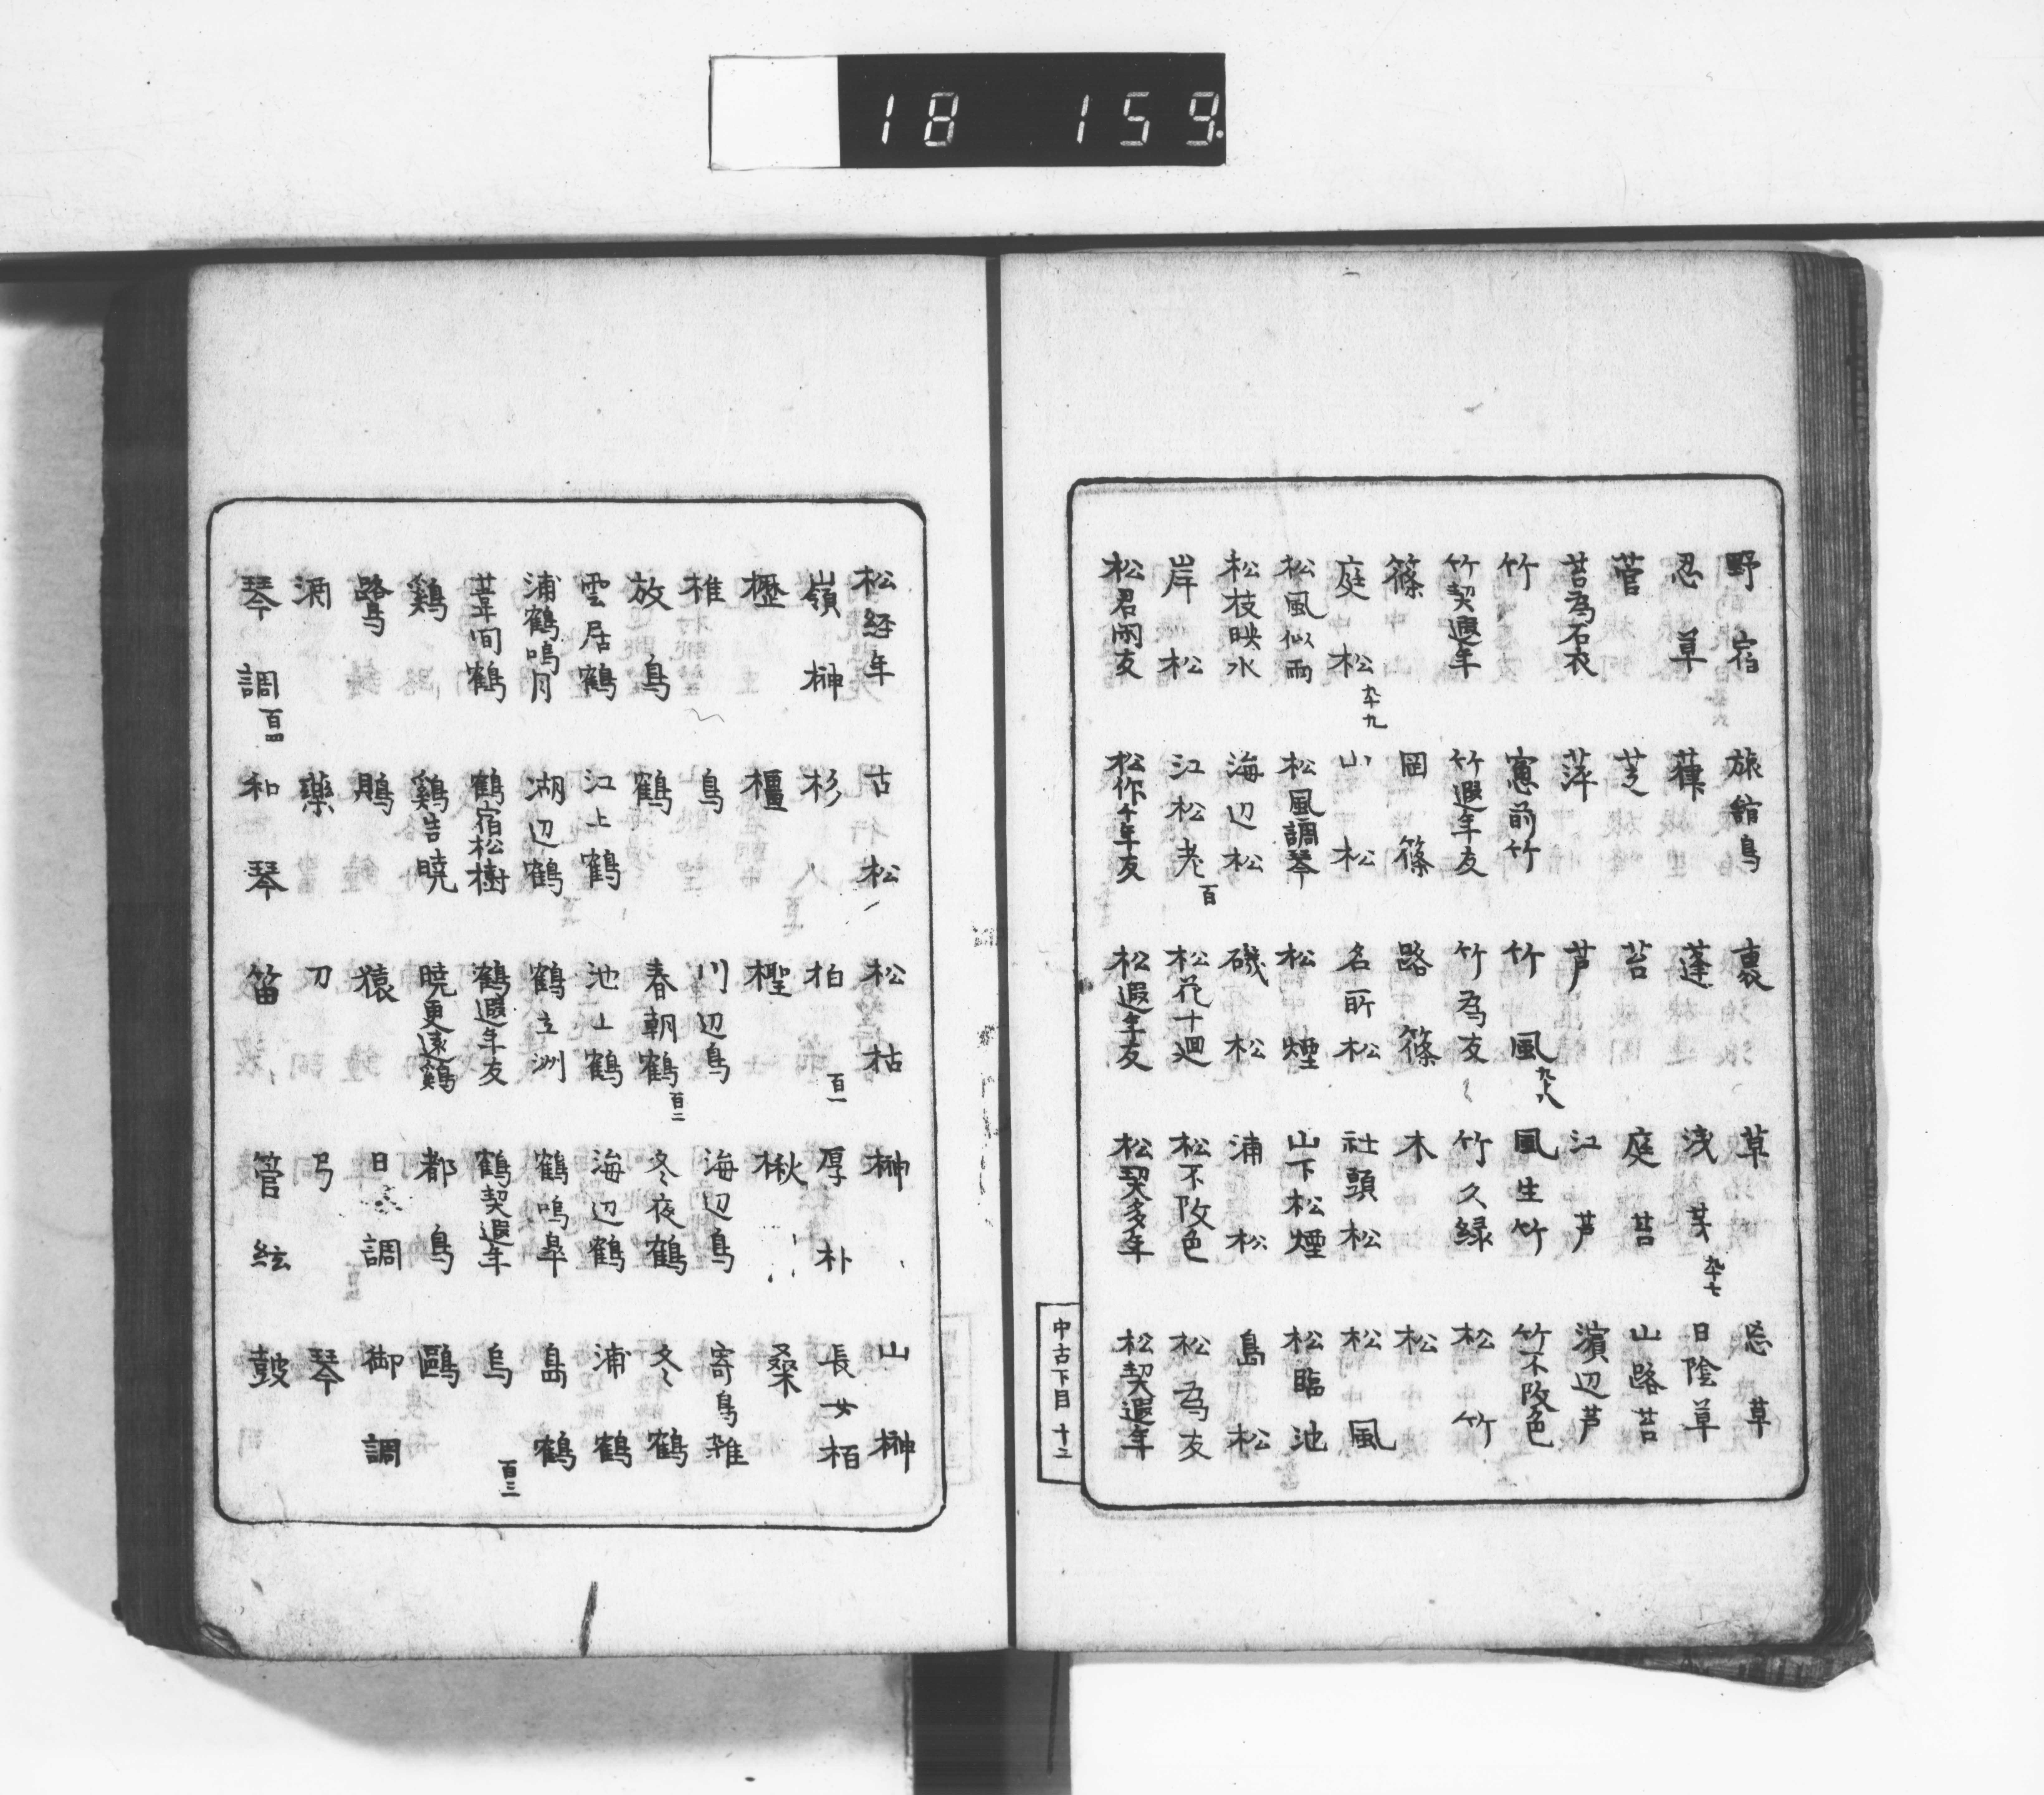 18 159
野宿 旅舘鳥 裏 草 忘草
忍草 葎 蓬 浅茅 九十七 日陰草
菅 芝 苔 庭苔 山路苔
苔為石衣 萍 芦 江芦 濱辺芦
竹 窓前竹 竹風 九十八 風生竹 竹不改色
竹契遐年 竹遐年友 竹為友 竹久緑 松竹
篠 岡篠 路篠 木 松
庭松 九十九 山松 名所松 社頭松 松風
松風似雨 松風調琴 松煙 山下松煙 松臨池
松枝映水 海辺松 磯松 浦松 島松
岸松 江松老 百 松花十廻 松不改色 松為友
松君閑友 松作千年友 松遐年友 松契多年 松契遐年
中古下目 十二
松経年 古松 松枯 榊 山榊
嶺榊 杉 柏 百一 厚朴 長女栢
櫪 橿 檉 楸 桑
椎 鳥 川辺鳥 海辺鳥 寄鳥雑
放鳥 鶴 春朝鶴 百二 冬夜鶴 冬鶴
雲居鶴 江上鶴 池上鶴 海辺鶴 浦鶴
浦鶴鳴月 湖辺鶴 鶴立洲 鶴鳴皐 島鶴
葦間鶴 鶴宿松樹 鶴遐年友 鶴契遐年 烏 百三
鷄 鷄告暁 暁更遠鷄 都鳥 鷗
鷺 鵰 猿 日次調 御調
酒 藥 刀 弓 琴
琴調 百四 和琴 笛 管絃 鼓